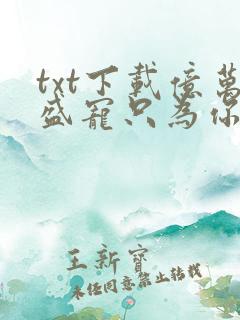 txt下載億萬
盛寵只為你
王新寶
未经同意禁止转载